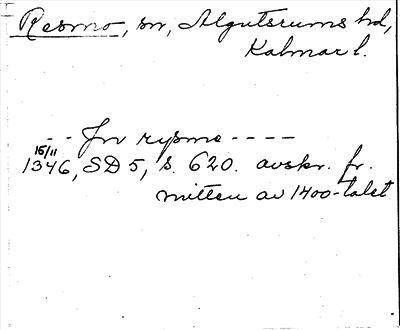 Resmo, sn, Algutsrums hd,
Kalmar l.
-- Jn rysmo ----
15/11
1346, SD 5, s. 620. avskr. fr.
mitten av 1400-talet